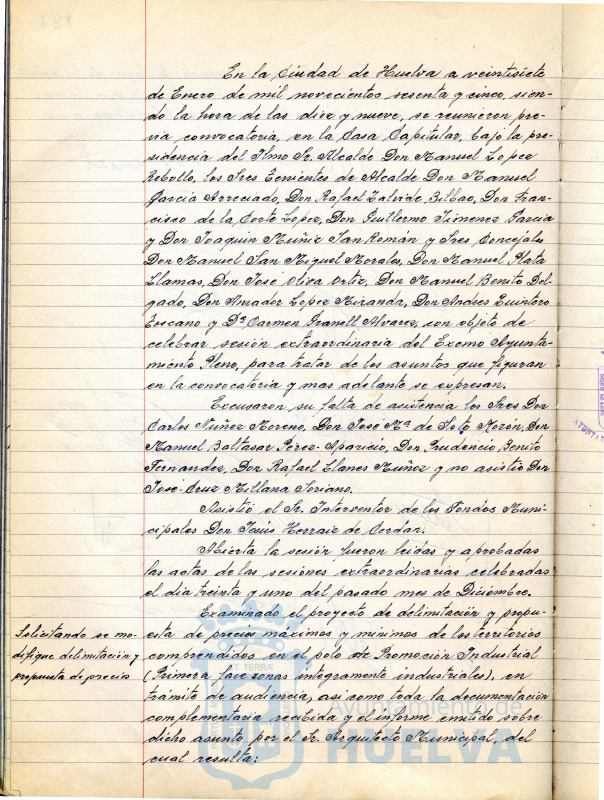 En la Ciudad de Huelva a veintisiete
de Enero de mil novecientos sesenta y cinco, sien-
do la hora de las diez y nueve, se reunieron pre-
via convocatoria, en la Casa Capitular, bajo la pre-
sidencia del Ilmo Sr. Alcalde Don Manuel Lopez
Rebollo, los Sres Tenientes de Alcalde Don Manuel
Garcia Don Rafael Bilbao, Don Fran-
cisco de la Corte Lopez, Don Guillermo Jimenez Garcia
y Don Joaquin Muñiz San Román y Sres Concejales
Don Manuel San Miguel Morales, Don Manuel Plata
Llamas, Don José Oliva Ortiz, Don Manuel Benito Del-
gado, Don Amador Lopez Miranda, Don Andres Quintero
Toscano y Dª Carmen Granell Alvarez, con objeto de
celebrar sesión extraordinaria del Excmo Ayunta-
miento Pleno, para tratar de los asuntos que figuran
en la convocatoria y mas adelante se expresan.
Excusaron su falta de asistencia los Sres Don
Carlos Nuñez Moreno, Don José Mª de Soto Morón, Don
Manuel Baltasar Pérez-Aparicio, Don Prudencio Benito
Fernandez, Don Rafael Llanes Muñoz y no asistió Don
José-Cruz Millana Soriano.
Asistió el Sr. Interventor de los Fondos Muni-
cipales Don Jesús Herraiz de Cerdan.
Abierta la sesión fueron leidas y aprobadas
las actas de las sesiones extraordinarias celebradas
el dia treinta y uno del pasado mes de Diciembre.
Solicitando se mo-
difique delimitación y
propuesta de precio
Examinado el proyecto de delimitación y propu-
esta de precios máximos y minimos de los territorios
comprendidos en el polo de Promoción Industrial
(Primera fase zonas integramente industriales), en
trámite de audiencia, asi como toda la documentación
complementaria recibida y el informe emitido sobre
dicho asunto por el Sr. Arquitecto Municipal, del
cual resulta:
Ayuntamiento de
HUELVA